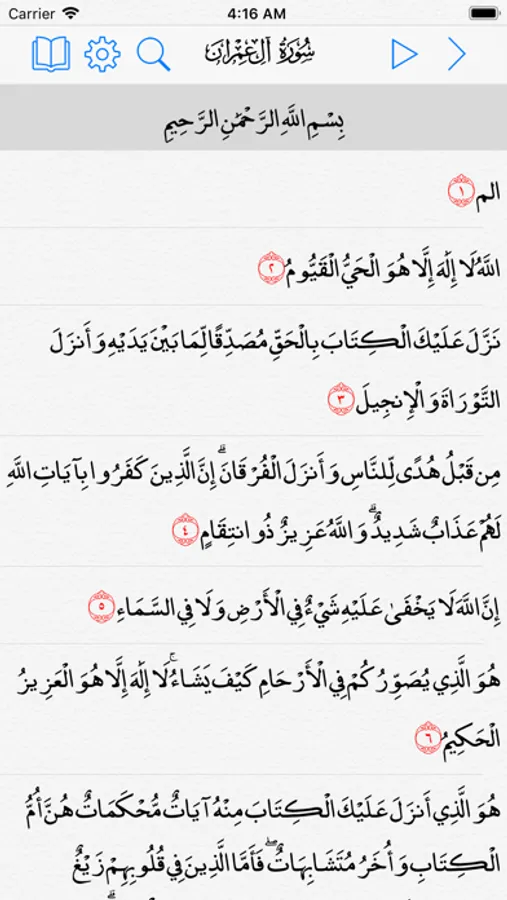 Carrier 4:16 AM
سُورَةُ آلِ عِمْرَانَ
بِسْمِ اللَّهِ الرَّحْمَٰنِ الرَّحِيمِ
الم ١
اللَّهُ لَا إِلَٰهَ إِلَّا هُوَ الْحَيُّ الْقَيُّومُ ٢
نَزَّلَ عَلَيْكَ الْكِتَابَ بِالْحَقِّ مُصَدِّقًا لِّمَا بَيْنَ يَدَيْهِ وَأَنزَلَ
التَّوْرَاةَ وَالْإِنجِيلَ ٣
مِن قَبْلُ هُدًى لِّلنَّاسِ وَأَنزَلَ الْفُرْقَانَ ۗ إِنَّ الَّذِينَ كَفَرُوا بِآيَاتِ اللَّهِ
لَهُمْ عَذَابٌ شَدِيدٌ ۗ وَاللَّهُ عَزِيزٌ ذُو انتِقَامٍ ٤
إِنَّ اللَّهَ لَا يَخْفَىٰ عَلَيْهِ شَيْءٌ فِي الْأَرْضِ وَلَا فِي السَّمَاءِ ٥
هُوَ الَّذِي يُصَوِّرُكُمْ فِي الْأَرْحَامِ كَيْفَ يَشَاءُ ۚ لَا إِلَٰهَ إِلَّا هُوَ الْعَزِيزُ
الْحَكِيمُ ٦
هُوَ الَّذِي أَنزَلَ عَلَيْكَ الْكِتَابَ مِنْهُ آيَاتٌ مُّحْكَمَاتٌ هُنَّ أُمُّ
الْكِتَابِ وَأُخَرُ مُتَشَابِهَاتٌ ۖ فَأَمَّا الَّذِينَ فِي قُلُوبِهِمْ زَيْغٌ